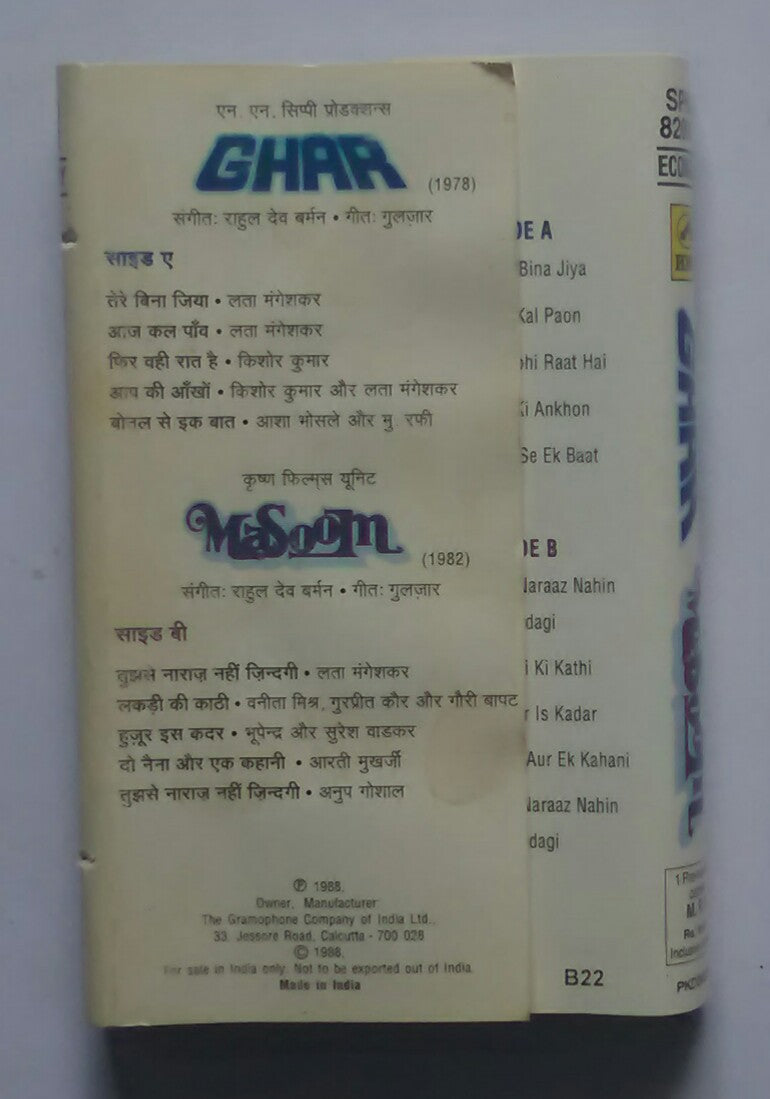 एन. एन. सिप्पी प्रोडक्शन्स
GHAR
(1978)
संगीतः राहुल देव बर्मन • गीतः गुलज़ार
साइड ए
तेरे बिना जिया • लता मंगेशकर
आज कल पाँव • लता मंगेशकर
फिर वही रात है • किशोर कुमार
आप की आँखों • किशोर कुमार और लता मंगेशकर
बोतल से इक बात • आशा भोसले और मु. रफी
कृष्ण फिल्म्स यूनिट
MaSooM
(1982)
संगीतः राहुल देव बर्मन • गीतः गुलज़ार
साइड बी
तुझसे नाराज़ नहीं ज़िन्दगी • लता मंगेशकर
लकड़ी की काठी • वनीता मिश्र, गुरप्रीत कौर और गौरी बापट
हुज़ूर इस कदर • भूपेन्द्र और सुरेश वाडकर
दो नैना और एक कहानी • आरती मुखर्जी
तुझसे नाराज़ नहीं ज़िन्दगी • अनुप गोशाल
Ⓟ 1988.
Owner, Manufacturer
The Gramophone Company of India Ltd.,
33, Jessore Road, Calcutta - 700 028
© 1988.
For sale in India only. Not to be exported out of India.
Made in India
DE A
Bina Jiya
Kal Paon
ohi Raat Hai
Ki Ankhon
Se Ek Baat
DE B
Naraaz Nahin
dagi
i Ki Kathi
r Is Kadar
Aur Ek Kahani
Naraaz Nahin
dagi
B22
SP
82
ECO
GHAR